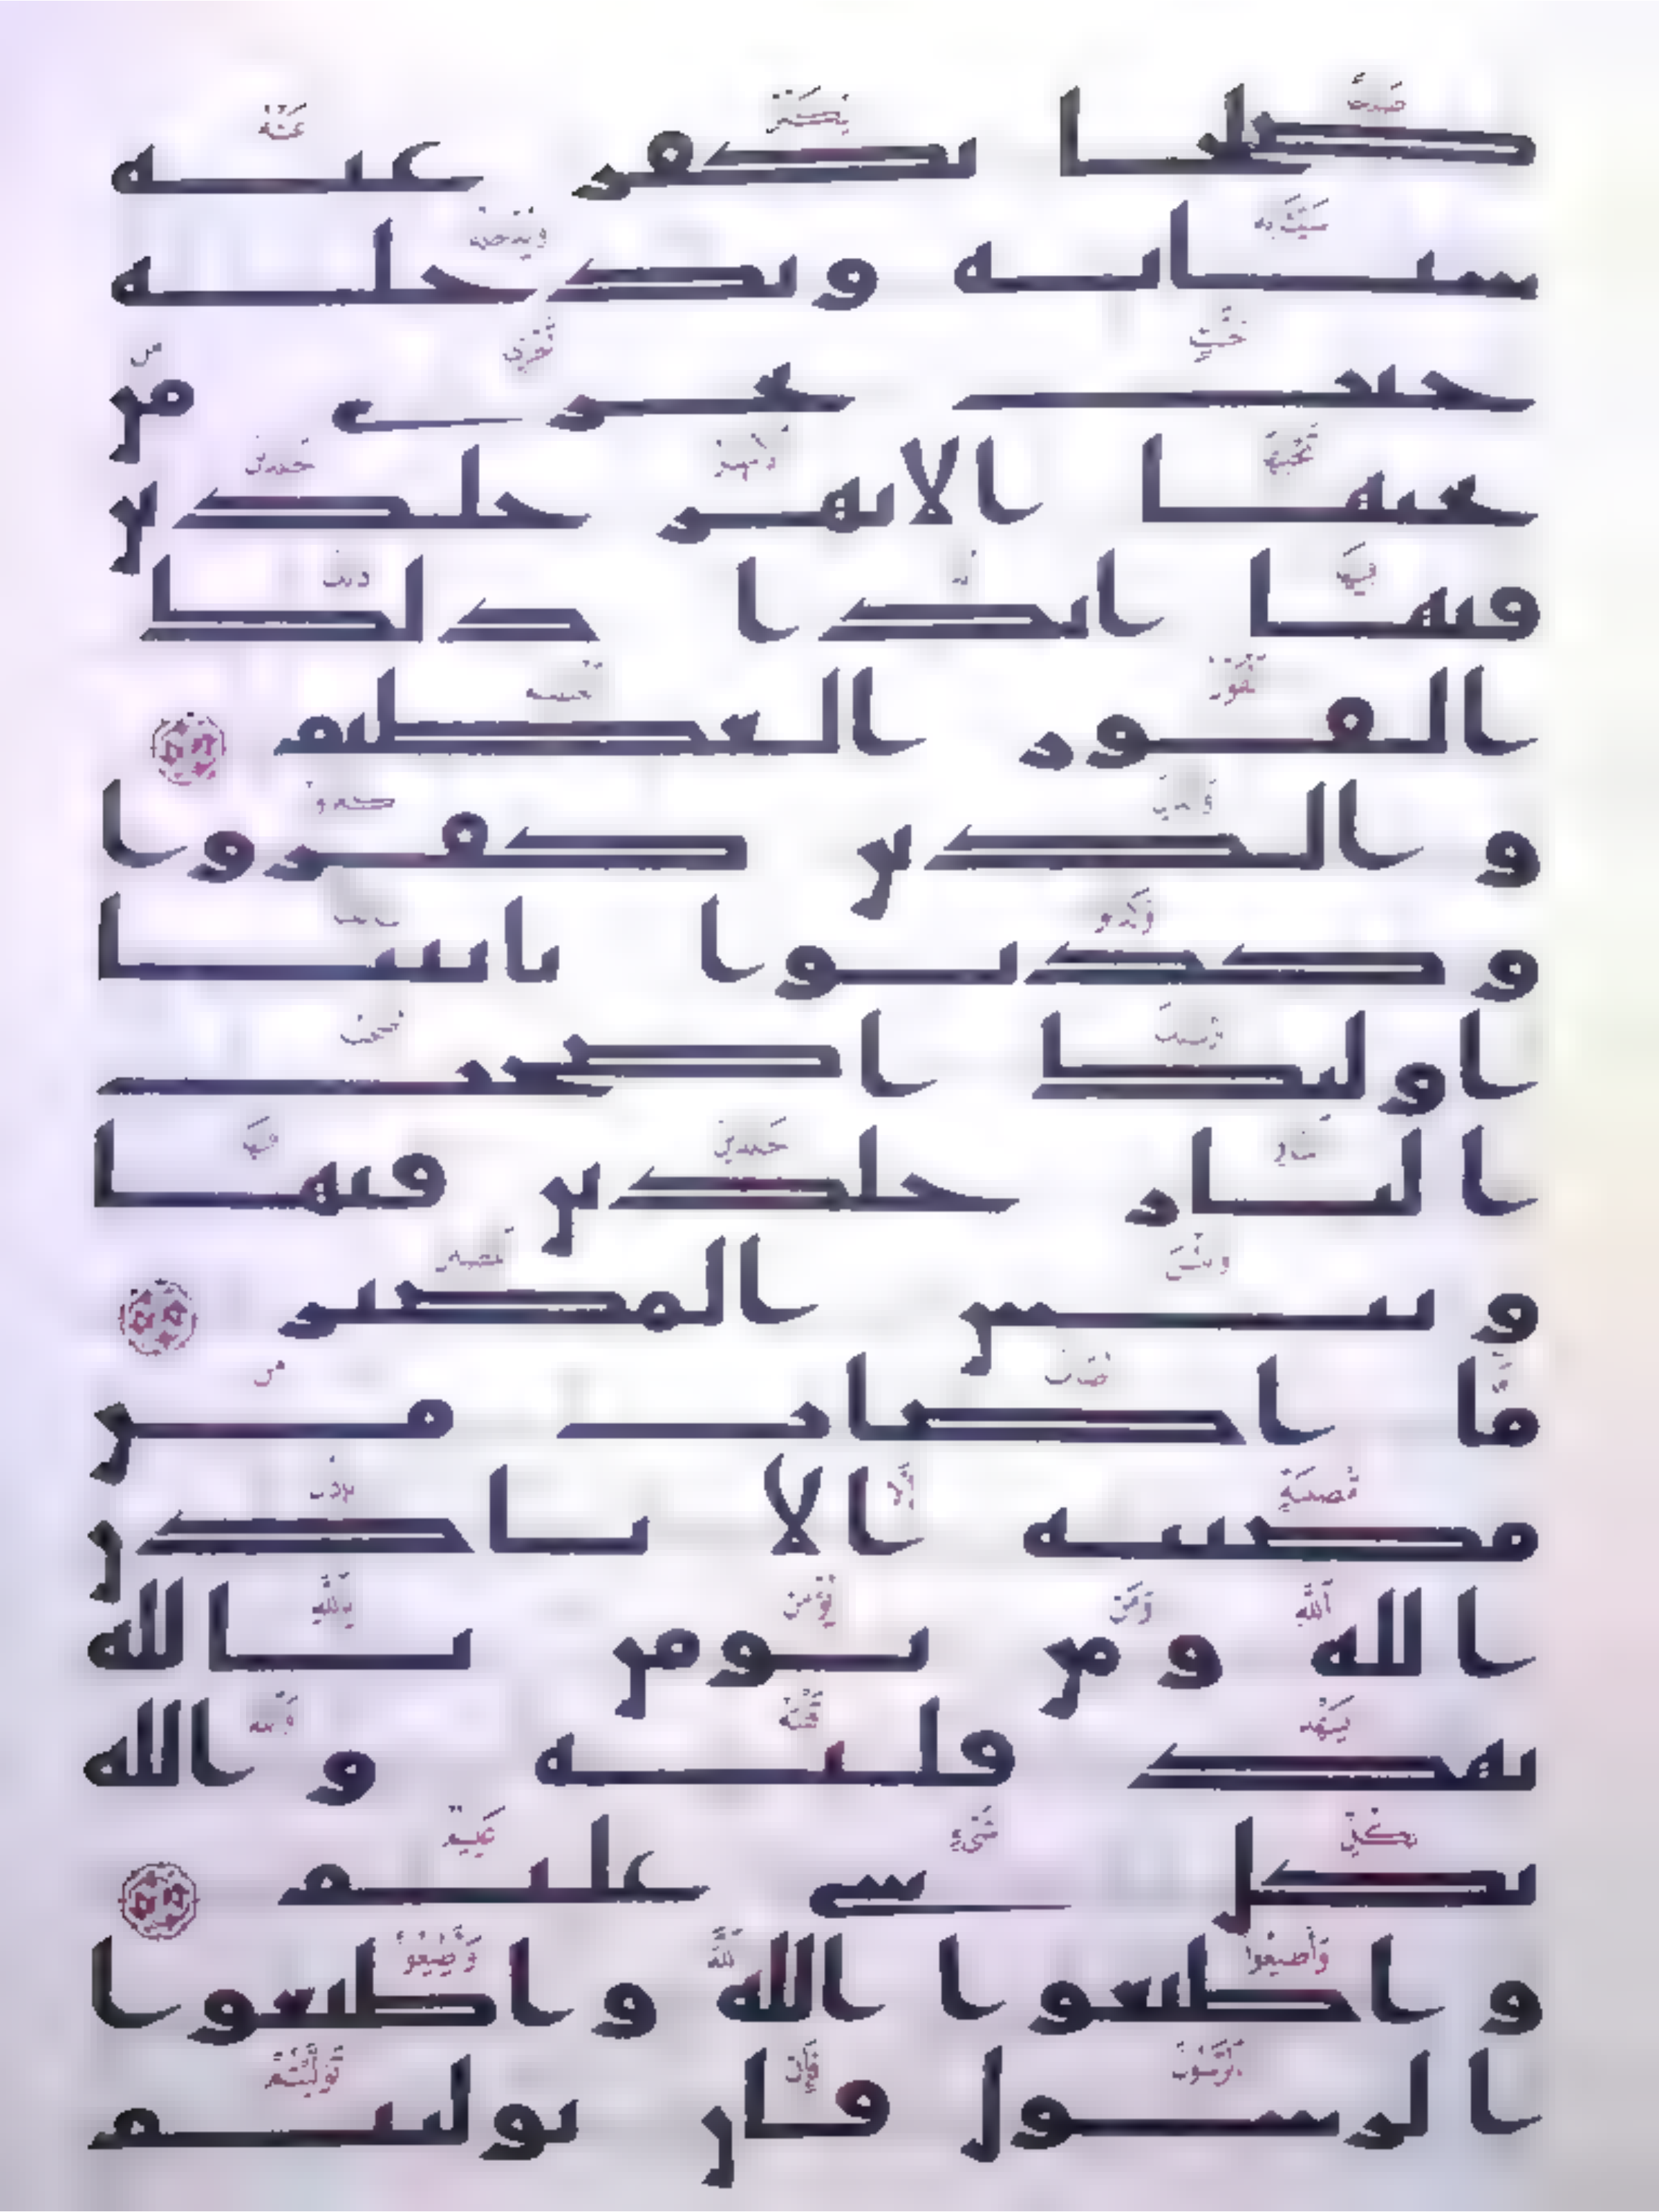 صلحا يكفر عنه
سياته ويدخله
جنت تجرى من
تحتها الانهر خلدين
فيها ابدا ذلك
الفوز العظيم
والذين كفروا
وكذبوا بايتنا
اوليك اصحب
النار خلدين فيها
وبيس المصير
ما اصاب من
مصيبه الا باذن
الله ومن يومن بالله
يهد قلبه والله
بكل شى عليم
واطيعوا الله واطيعوا
الرسول فان توليتم